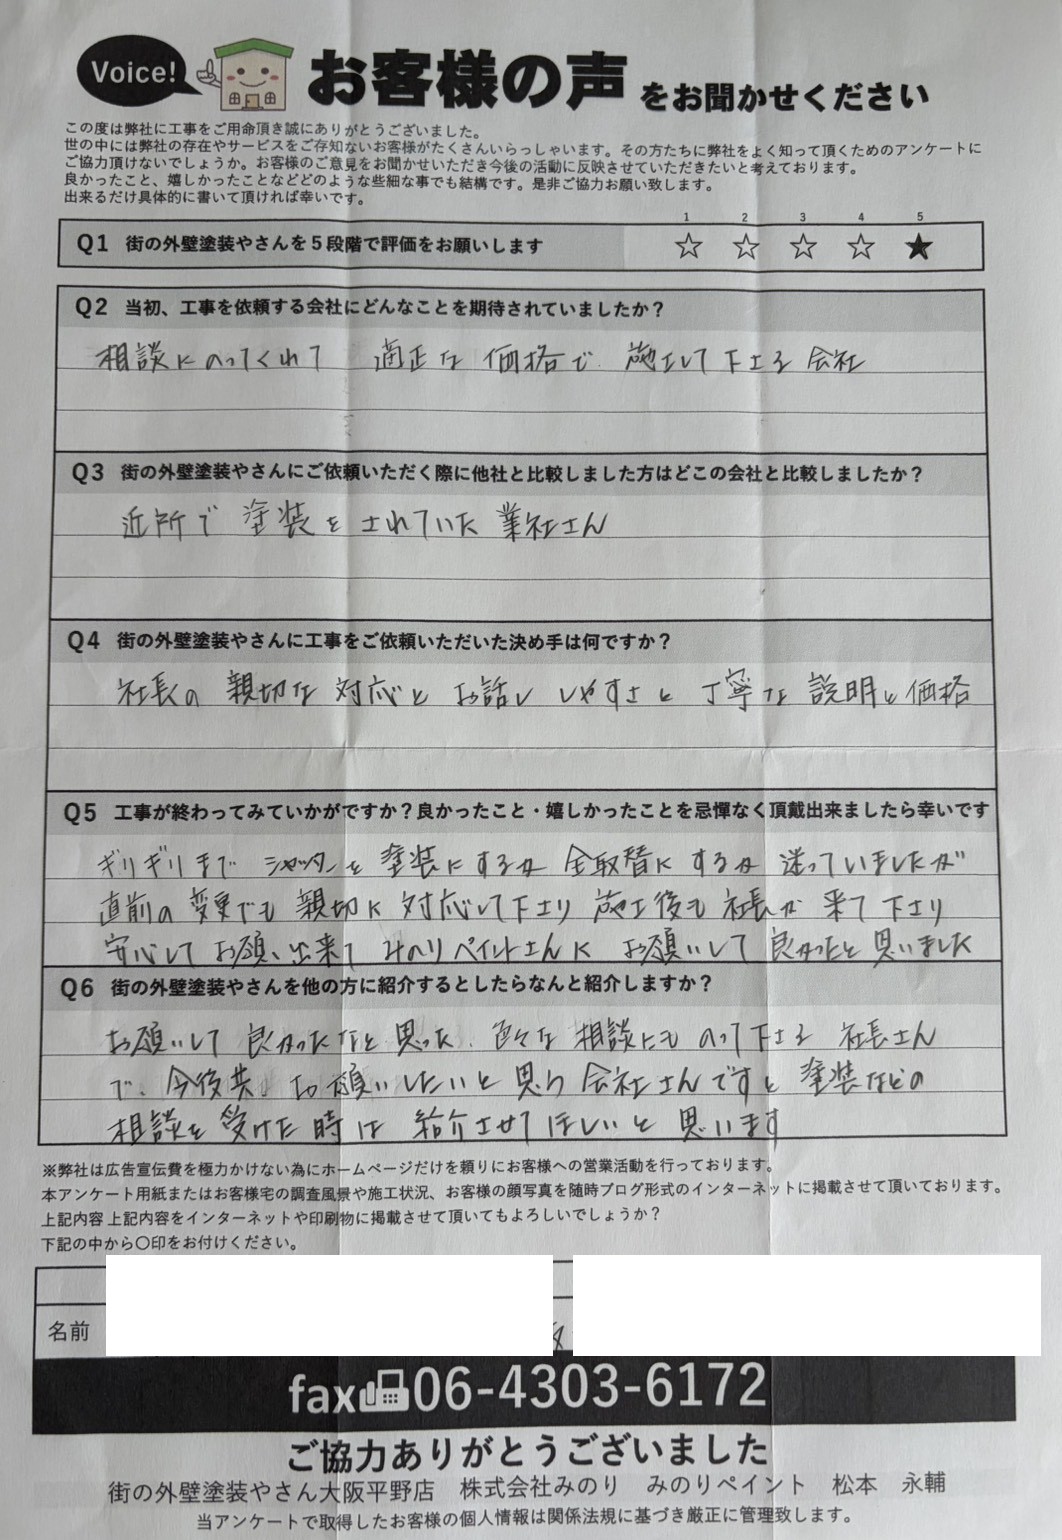 Voice!
お客様の声 をお聞かせください
この度は弊社に工事をご用命頂き誠にありがとうございました。
世の中には弊社の存在やサービスをご存知ないお客様がたくさんいらっしゃいます。その方たちに弊社をよく知って頂くためのアンケートに
ご協力頂けないでしょうか。お客様のご意見をお聞かせいただき今後の活動に反映させていただきたいと考えております。
良かったこと、嬉しかったことなどどのような些細な事でも結構です。是非ご協力お願い致します。
出来るだけ具体的に書いて頂ければ幸いです。
1 2 3 4 5
Q1 街の外壁塗装やさんを５段階で評価をお願いします ☆ ☆ ☆ ☆ ★
Q2 当初、工事を依頼する会社にどんなことを期待されていましたか？
相談にのってくれて 適正な 価格で 施工して下さる 会社
Q3 街の外壁塗装やさんにご依頼いただく際に他社と比較しました方はどこの会社と比較しましたか？
近所で 塗装を されていた 業社さん
Q4 街の外壁塗装やさんに工事をご依頼いただいた決め手は何ですか？
社長の 親切な 対応と お話し しやすさと 丁寧な 説明と価格
Q5 工事が終わってみていかがですか？良かったこと・嬉しかったことを忌憚なく頂戴出来ましたら幸いです
ギリギリまで シャッターを 塗装にするか 全取替に するか 迷っていましたが
直前の 変更でも 親切に 対応して下さり 施工後も 社長が 来て 下さり
安心して お願い出来て みのりペイントさんに お願いして 良かったと 思いました
Q6 街の外壁塗装やさんを他の方に紹介するとしたらなんと紹介しますか？
お願いして 良かったなと 思った、色々な 相談にも のって下さる 社長さん
で、今後共 お願いしたいと 思う 会社さんですと 塗装などの
相談を 受けた時は 紹介させてほしいと 思います
※弊社は広告宣伝費を極力かけない為にホームページだけを頼りにお客様への営業活動を行っております。
本アンケート用紙またはお客様宅の調査風景や施工状況、お客様の顔写真を随時ブログ形式のインターネットに掲載させて頂いております。
上記内容 上記内容をインターネットや印刷物に掲載させて頂いてもよろしいでしょうか？
下記の中から〇印をお付けください。
名前
fax 06-4303-6172
ご協力ありがとうございました
街の外壁塗装やさん大阪平野店 株式会社みのり みのりペイント 松本 永輔
当アンケートで取得したお客様の個人情報は関係法規に基づき厳正に管理致します。